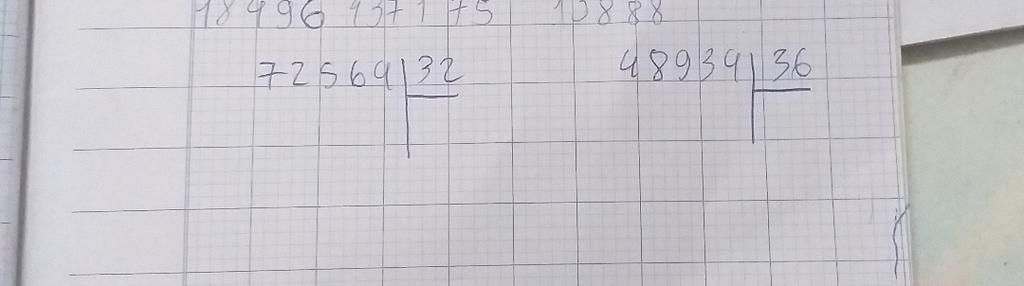 18496 137175 10888
72564 32 48934 36